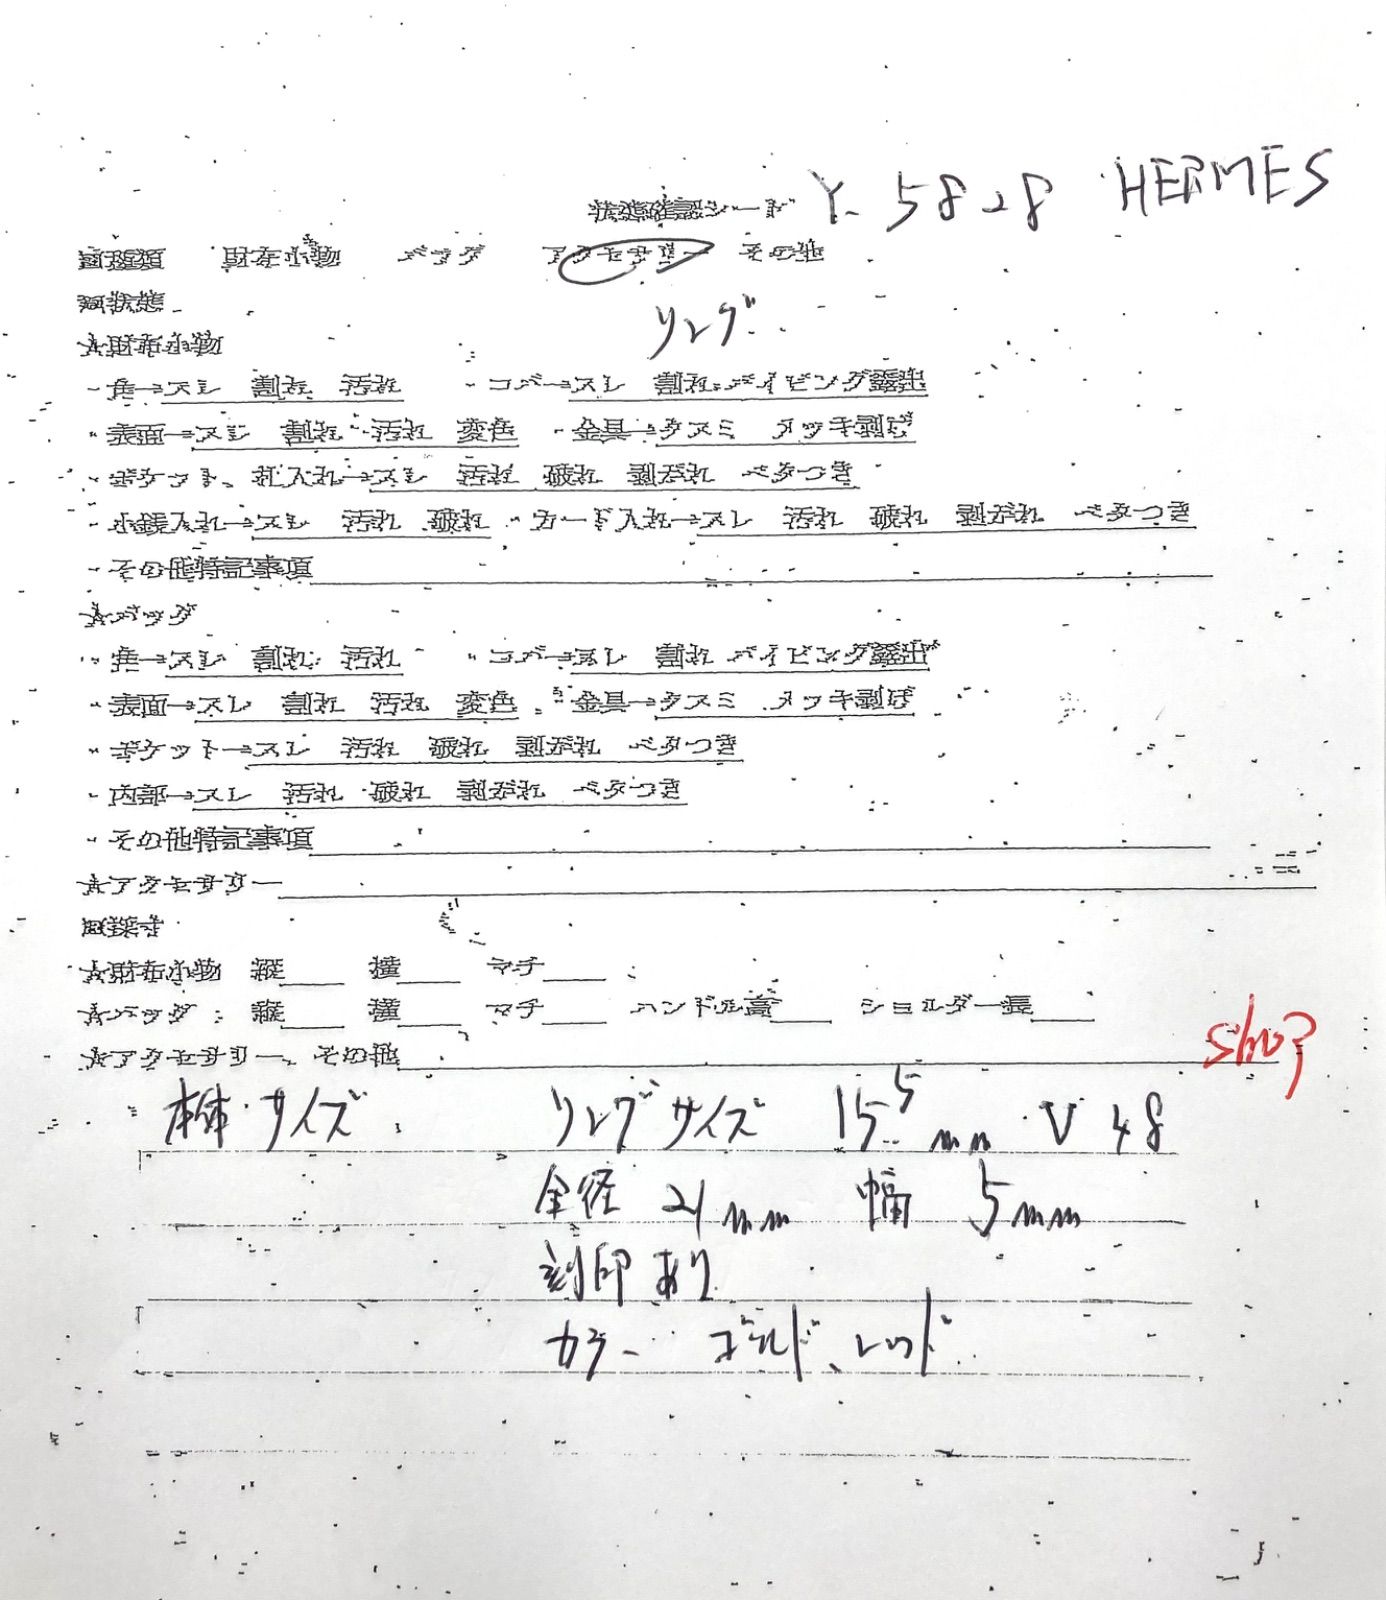 状態確認シート Y-5828 HERMES
財布小物 バッグ アクセサリー その他
状態
リング
★財布小物
・角→スレ 割れ 汚れ ・コバ→スレ 割れ パイピング露出
・表面→スレ 割れ 汚れ 変色 ・金具→クスミ メッキ剥げ
・ポケット、札入れ→スレ 汚れ 破れ 剥がれ ベタつき
・小銭入れ→スレ 汚れ 破れ ・カード入れ→スレ 汚れ 破れ 剥がれ ベタつき
・その他特記事項
★バッグ
・角→スレ 割れ 汚れ ・コバ→スレ 割れ パイピング露出
・表面→スレ 割れ 汚れ 変色 ・金具→クスミ メッキ剥げ
・ポケット→スレ 汚れ 破れ 剥がれ ベタつき
・内部→スレ 汚れ 破れ 剥がれ ベタつき
・その他特記事項
★アクセサリー
採寸
★財布小物 縦 横 マチ
★バッグ 縦 横 マチ ハンドル高 ショルダー長
★アクセサリー、その他
本体サイズ リングサイズ 15.5mm V48
全径 21mm 幅 5mm
刻印あり
カラー ゴールド、レッド